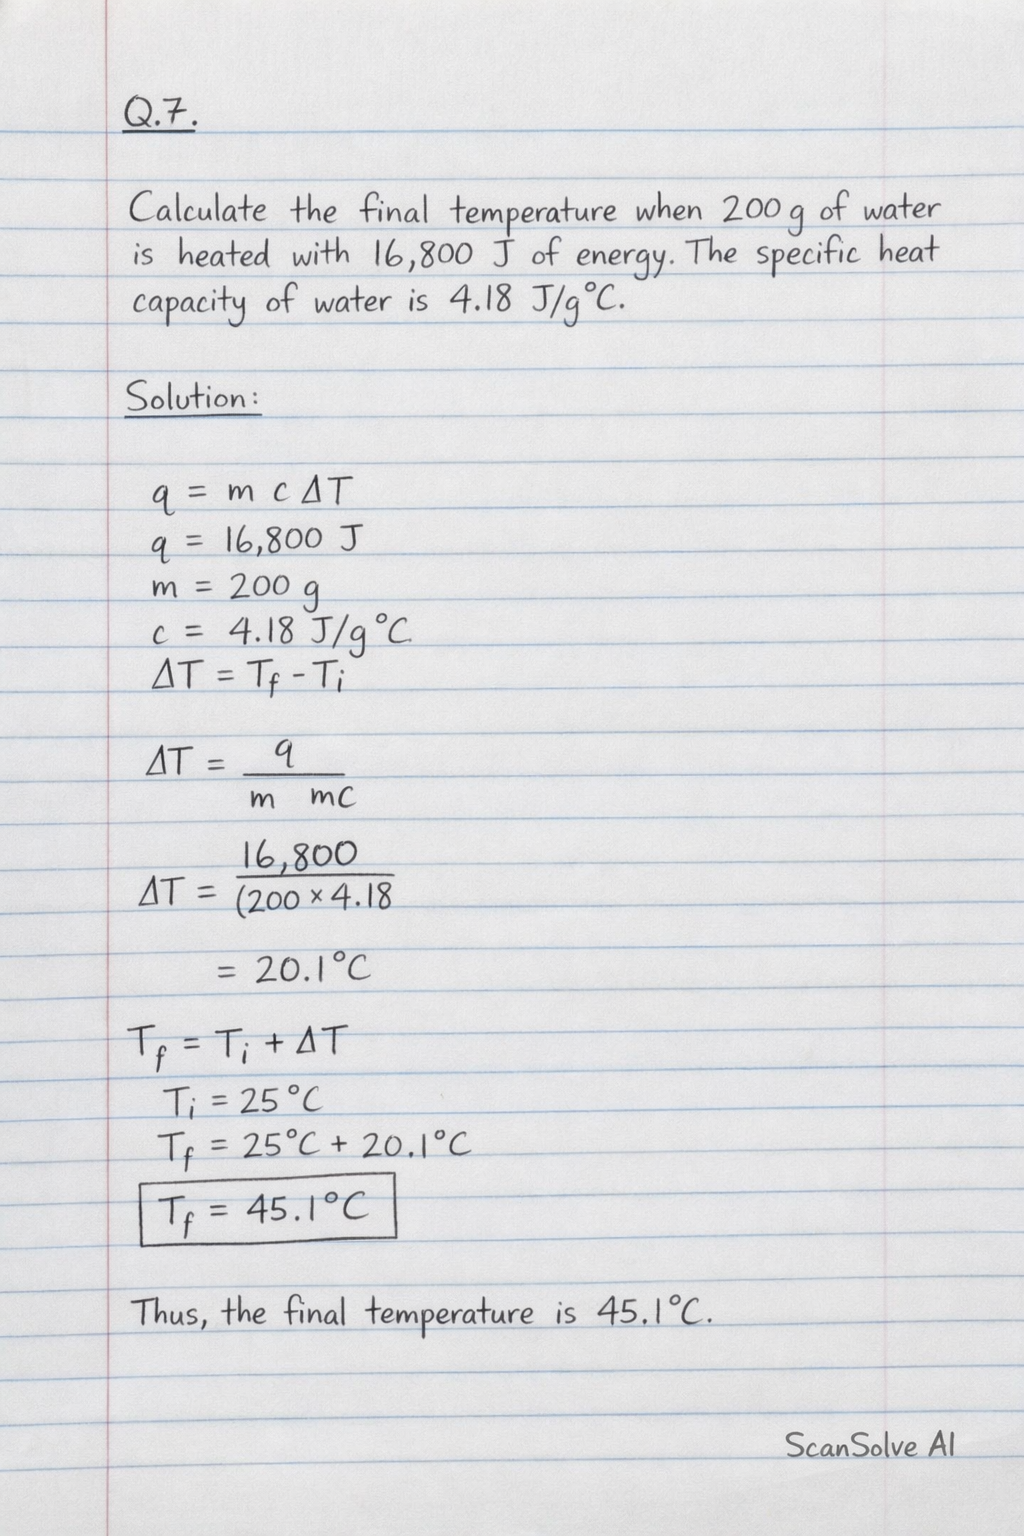 Q.7.
Calculate the final temperature when 200 g of water
is heated with 16,800 J of energy. The specific heat
capacity of water is 4.18 J/g°C.
Solution:
q = m c ΔT
q = 16,800 J
m = 200 g
c = 4.18 J/g°C
ΔT = Tf - Ti
ΔT = q
m mc
16,800
ΔT = (200 × 4.18
= 20.1°C
Tf = Ti + ΔT
Ti = 25°C
Tf = 25°C + 20.1°C
Tf = 45.1°C
Thus, the final temperature is 45.1°C.
ScanSolve AI